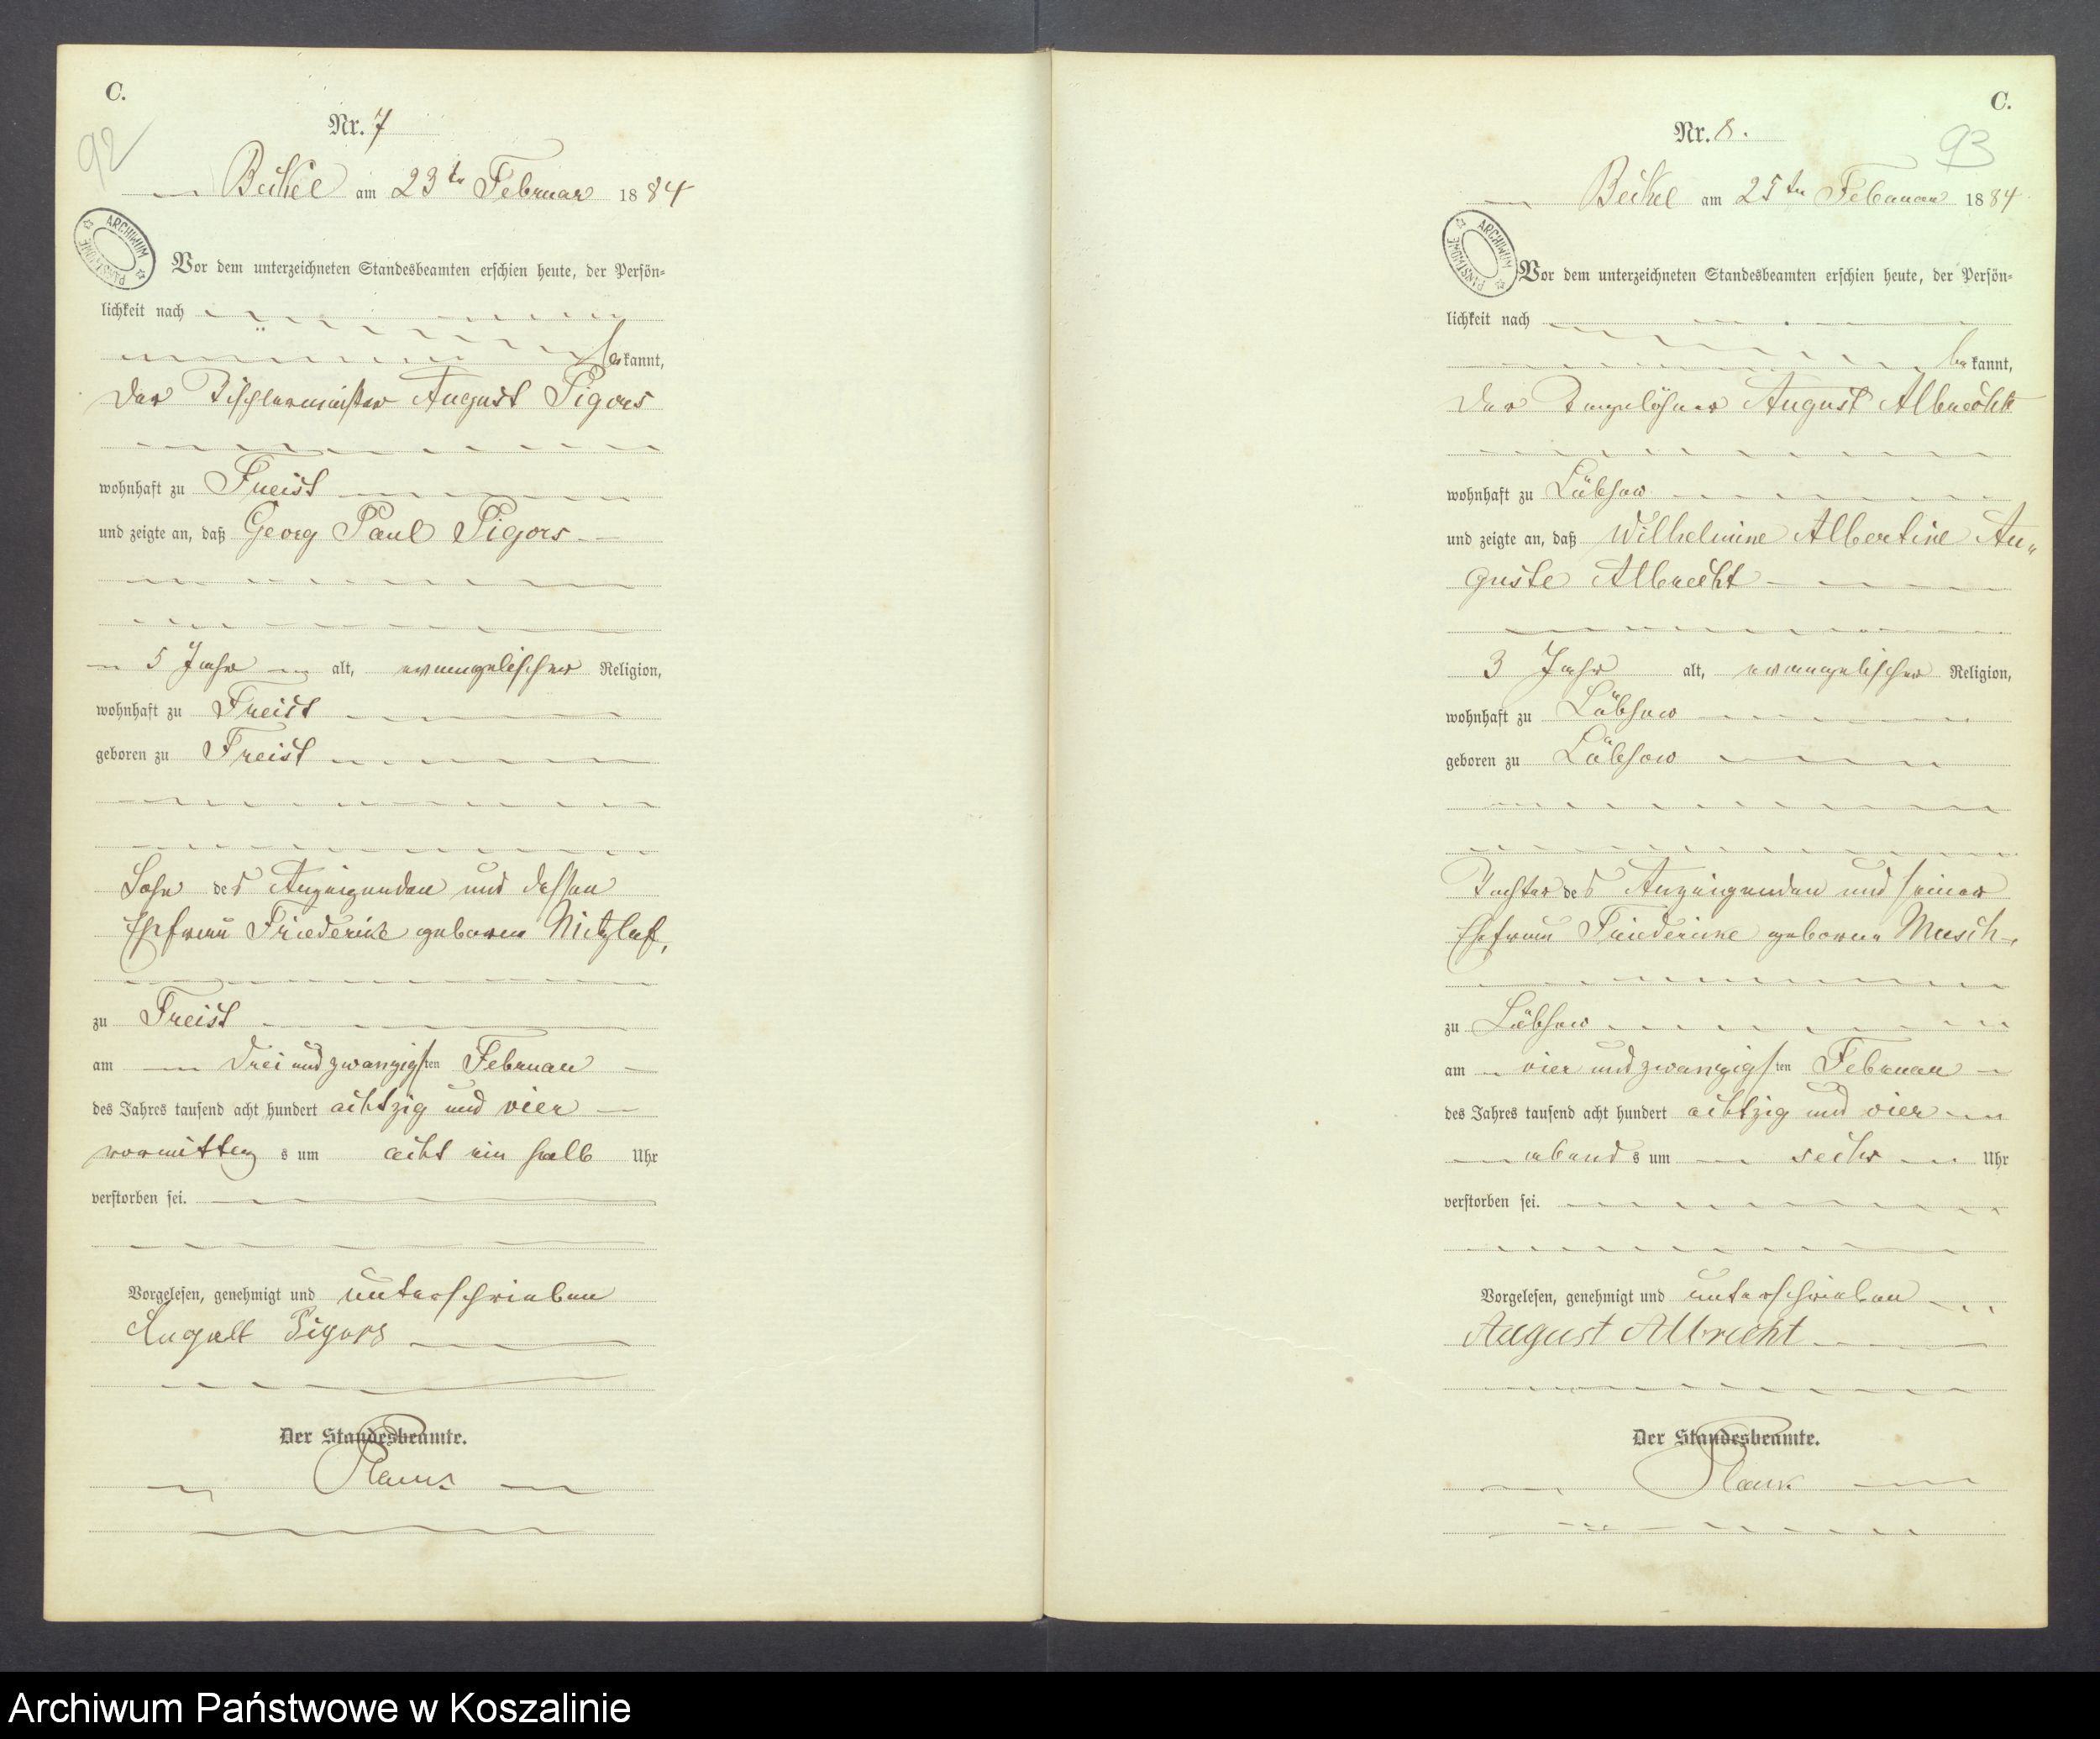 C.
Nr. 7
92
Beckel am 23ten Februar 1884
ARCHIWUM PAŃSTWOWE
Vor dem unterzeichneten Standesbeamten erschien heute, der Persön=
lichkeit nach
bekannt,
der Tischlermeister August Pigors
wohnhaft zu Freist
und zeigte an, daß Georg Paul Pigors
5 Jahr alt, evangelischer Religion,
wohnhaft zu Freist
geboren zu Freist
Sohn des Anzeigenden und dessen
Ehefrau Friedericke geborene Nitzlaf,
zu Freist
am drei und zwanzigsten Februar
des Jahres tausend acht hundert achtzig und vier
vormittags um acht ein halb Uhr
verstorben sei.
Vorgelesen, genehmigt und unterschrieben
August Pigors
Der Standesbeamte.
C.
Nr. 8.
93
Beckel am 25ten Februar 1884
ARCHIWUM PAŃSTWOWE
Vor dem unterzeichneten Standesbeamten erschien heute, der Persön=
lichkeit nach
bekannt,
der Tagelöhner August Albrecht
wohnhaft zu Lübsow
und zeigte an, daß Wilhelmine Albertine Au„
guste Albrecht
3 Jahr alt, evangelischer Religion,
wohnhaft zu Lübsow
geboren zu Lübsow
Tochter des Anzeigenden und seiner
Ehefrau Friedericke geborene Musch
zu Lübsow
am vier und zwanzigsten Februar
des Jahres tausend acht hundert achtzig und vier
abends um sechs Uhr
verstorben sei.
Vorgelesen, genehmigt und unterschrieben
August Albrecht
Der Standesbeamte.
Archiwum Państwowe w Koszalinie